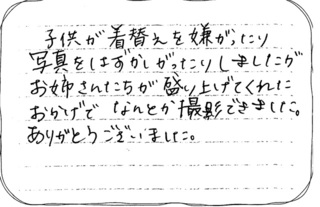 子供が着替えを嫌がったり
写真をはずかしがったりしましたが
お姉さんたちが盛り上げてくれた
おかげで なんとか撮影できました。
ありがとうございました。